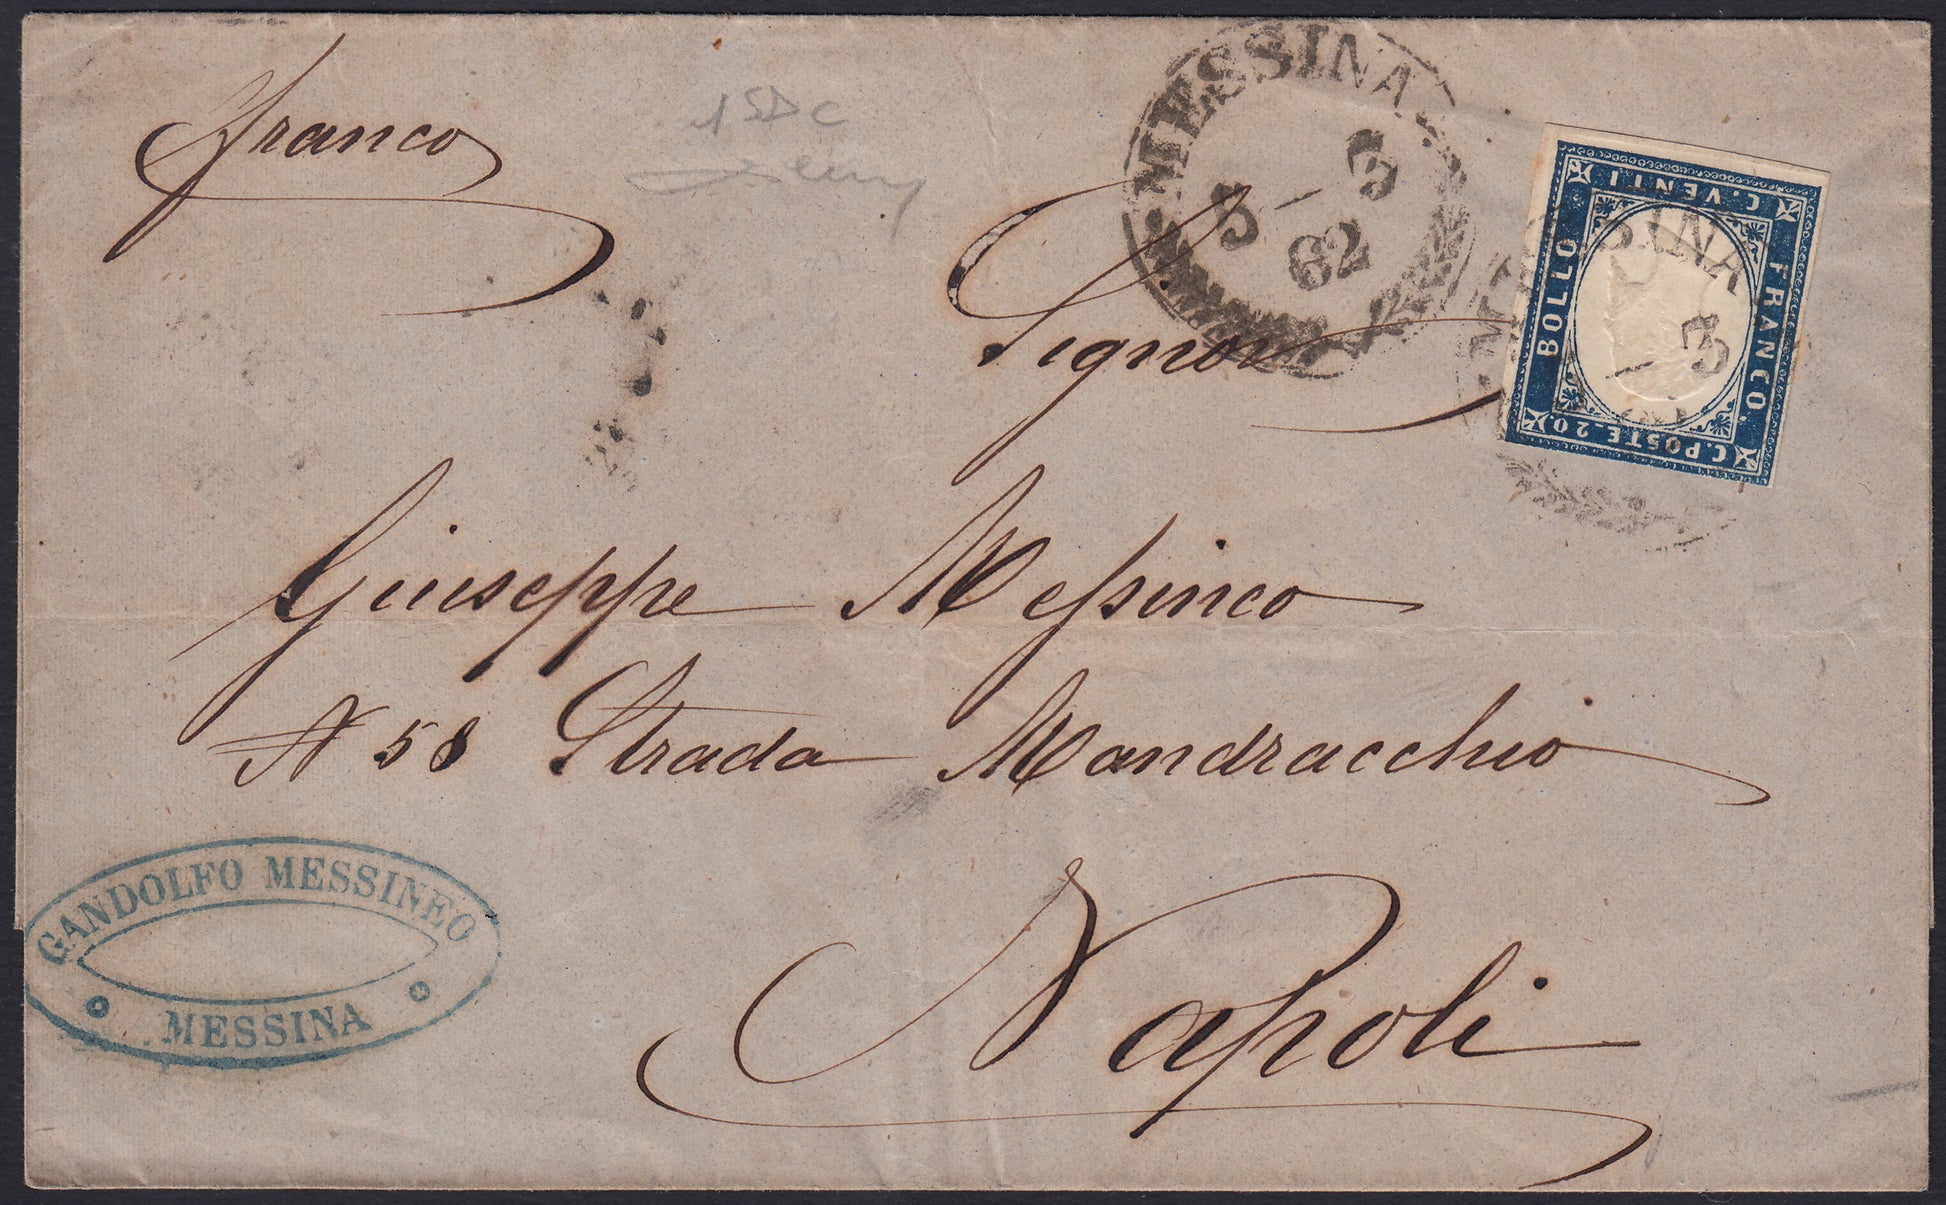 franco
1SDC
MESSINA
5 – 3
62
C. VENTI
BOLLO
FRANCO.
C. POSTE. 20.
SINA
3
Signor
Giuseppe Messineo
N 58 Strada Mandracchio
Napoli
GANDOLFO MESSINEO
MESSINA